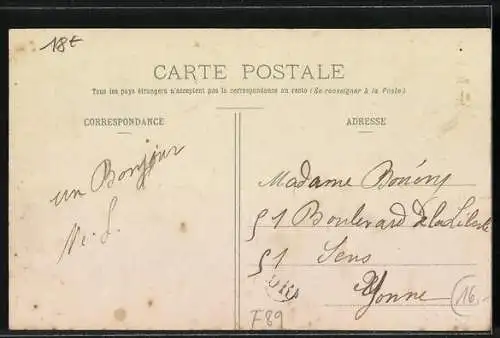 18t
CARTE POSTALE
Tous les pays étrangers n'acceptent pas la correspondance au recto (Se renseigner à la Poste)
CORRESPONDANCE
ADRESSE
un Bonjour
Madame
51 Boulevard de la Liberté
51 Sens
Yonne
16.-
F89